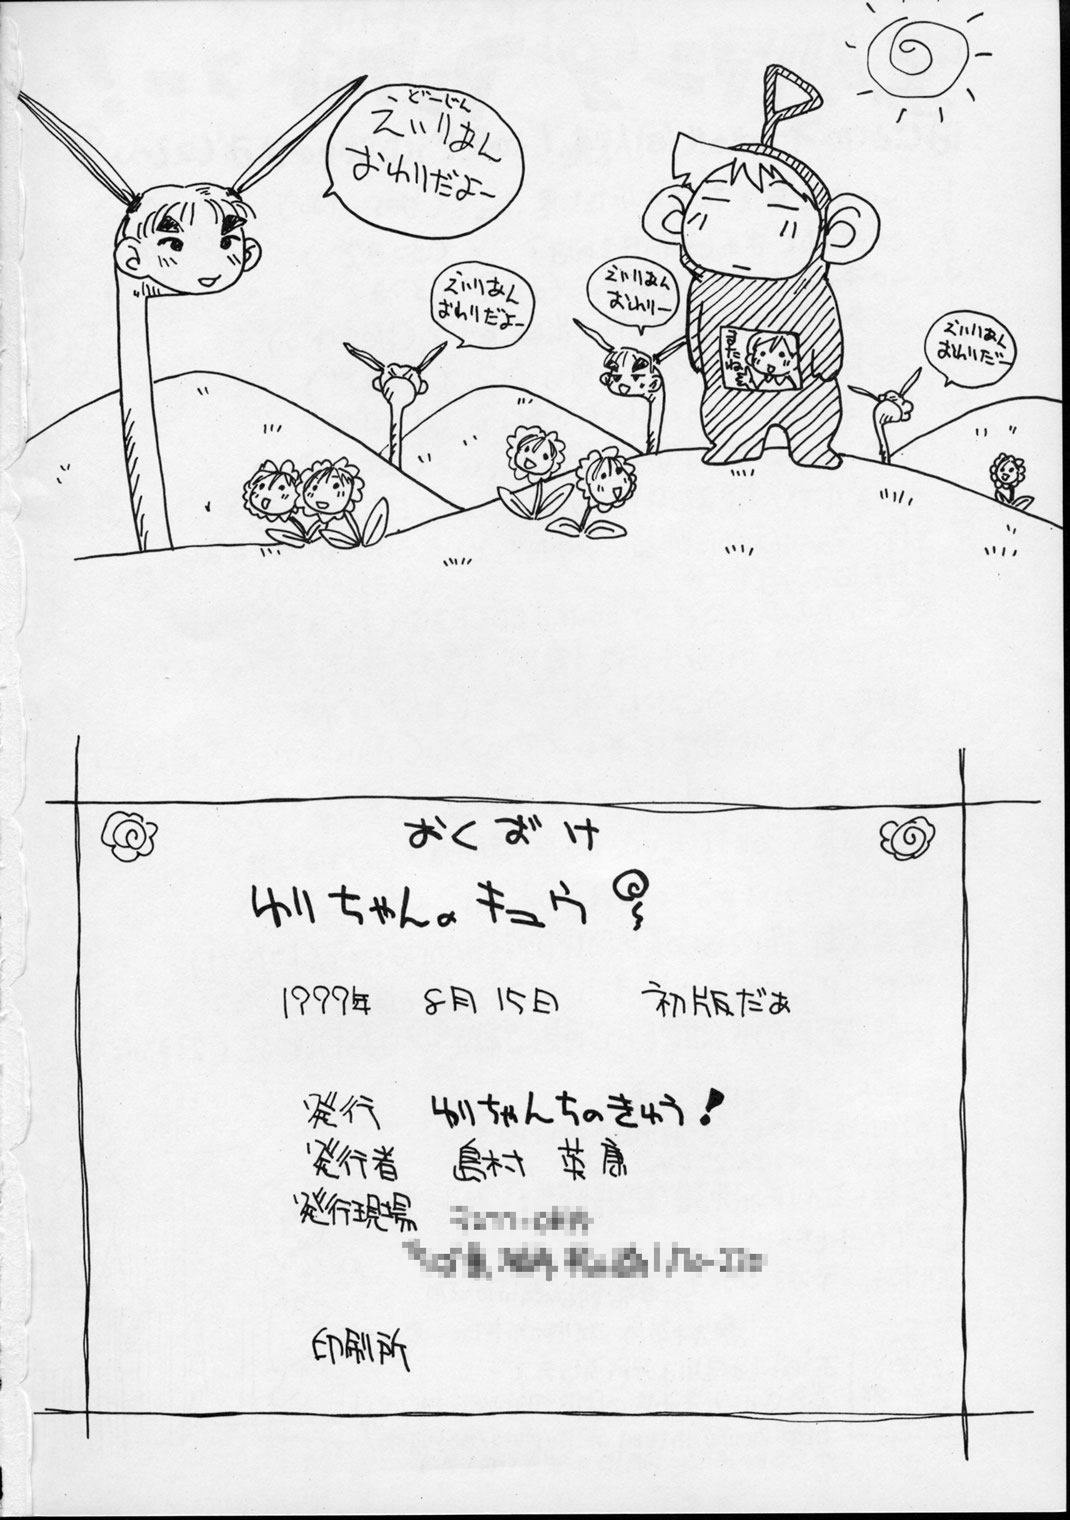 どーじん
えいりあん
おわりだよー
えいりあん
おわりだよー
えいりあん
おわりー
えいりあん
おわりだー
またねー
おくずけ
ゆりちゃんの キュウ
1999年 8月15日 初版だぁ
発行 ゆりちゃんちのきゅう!
発行者 島村 英康
発行現場
印刷所